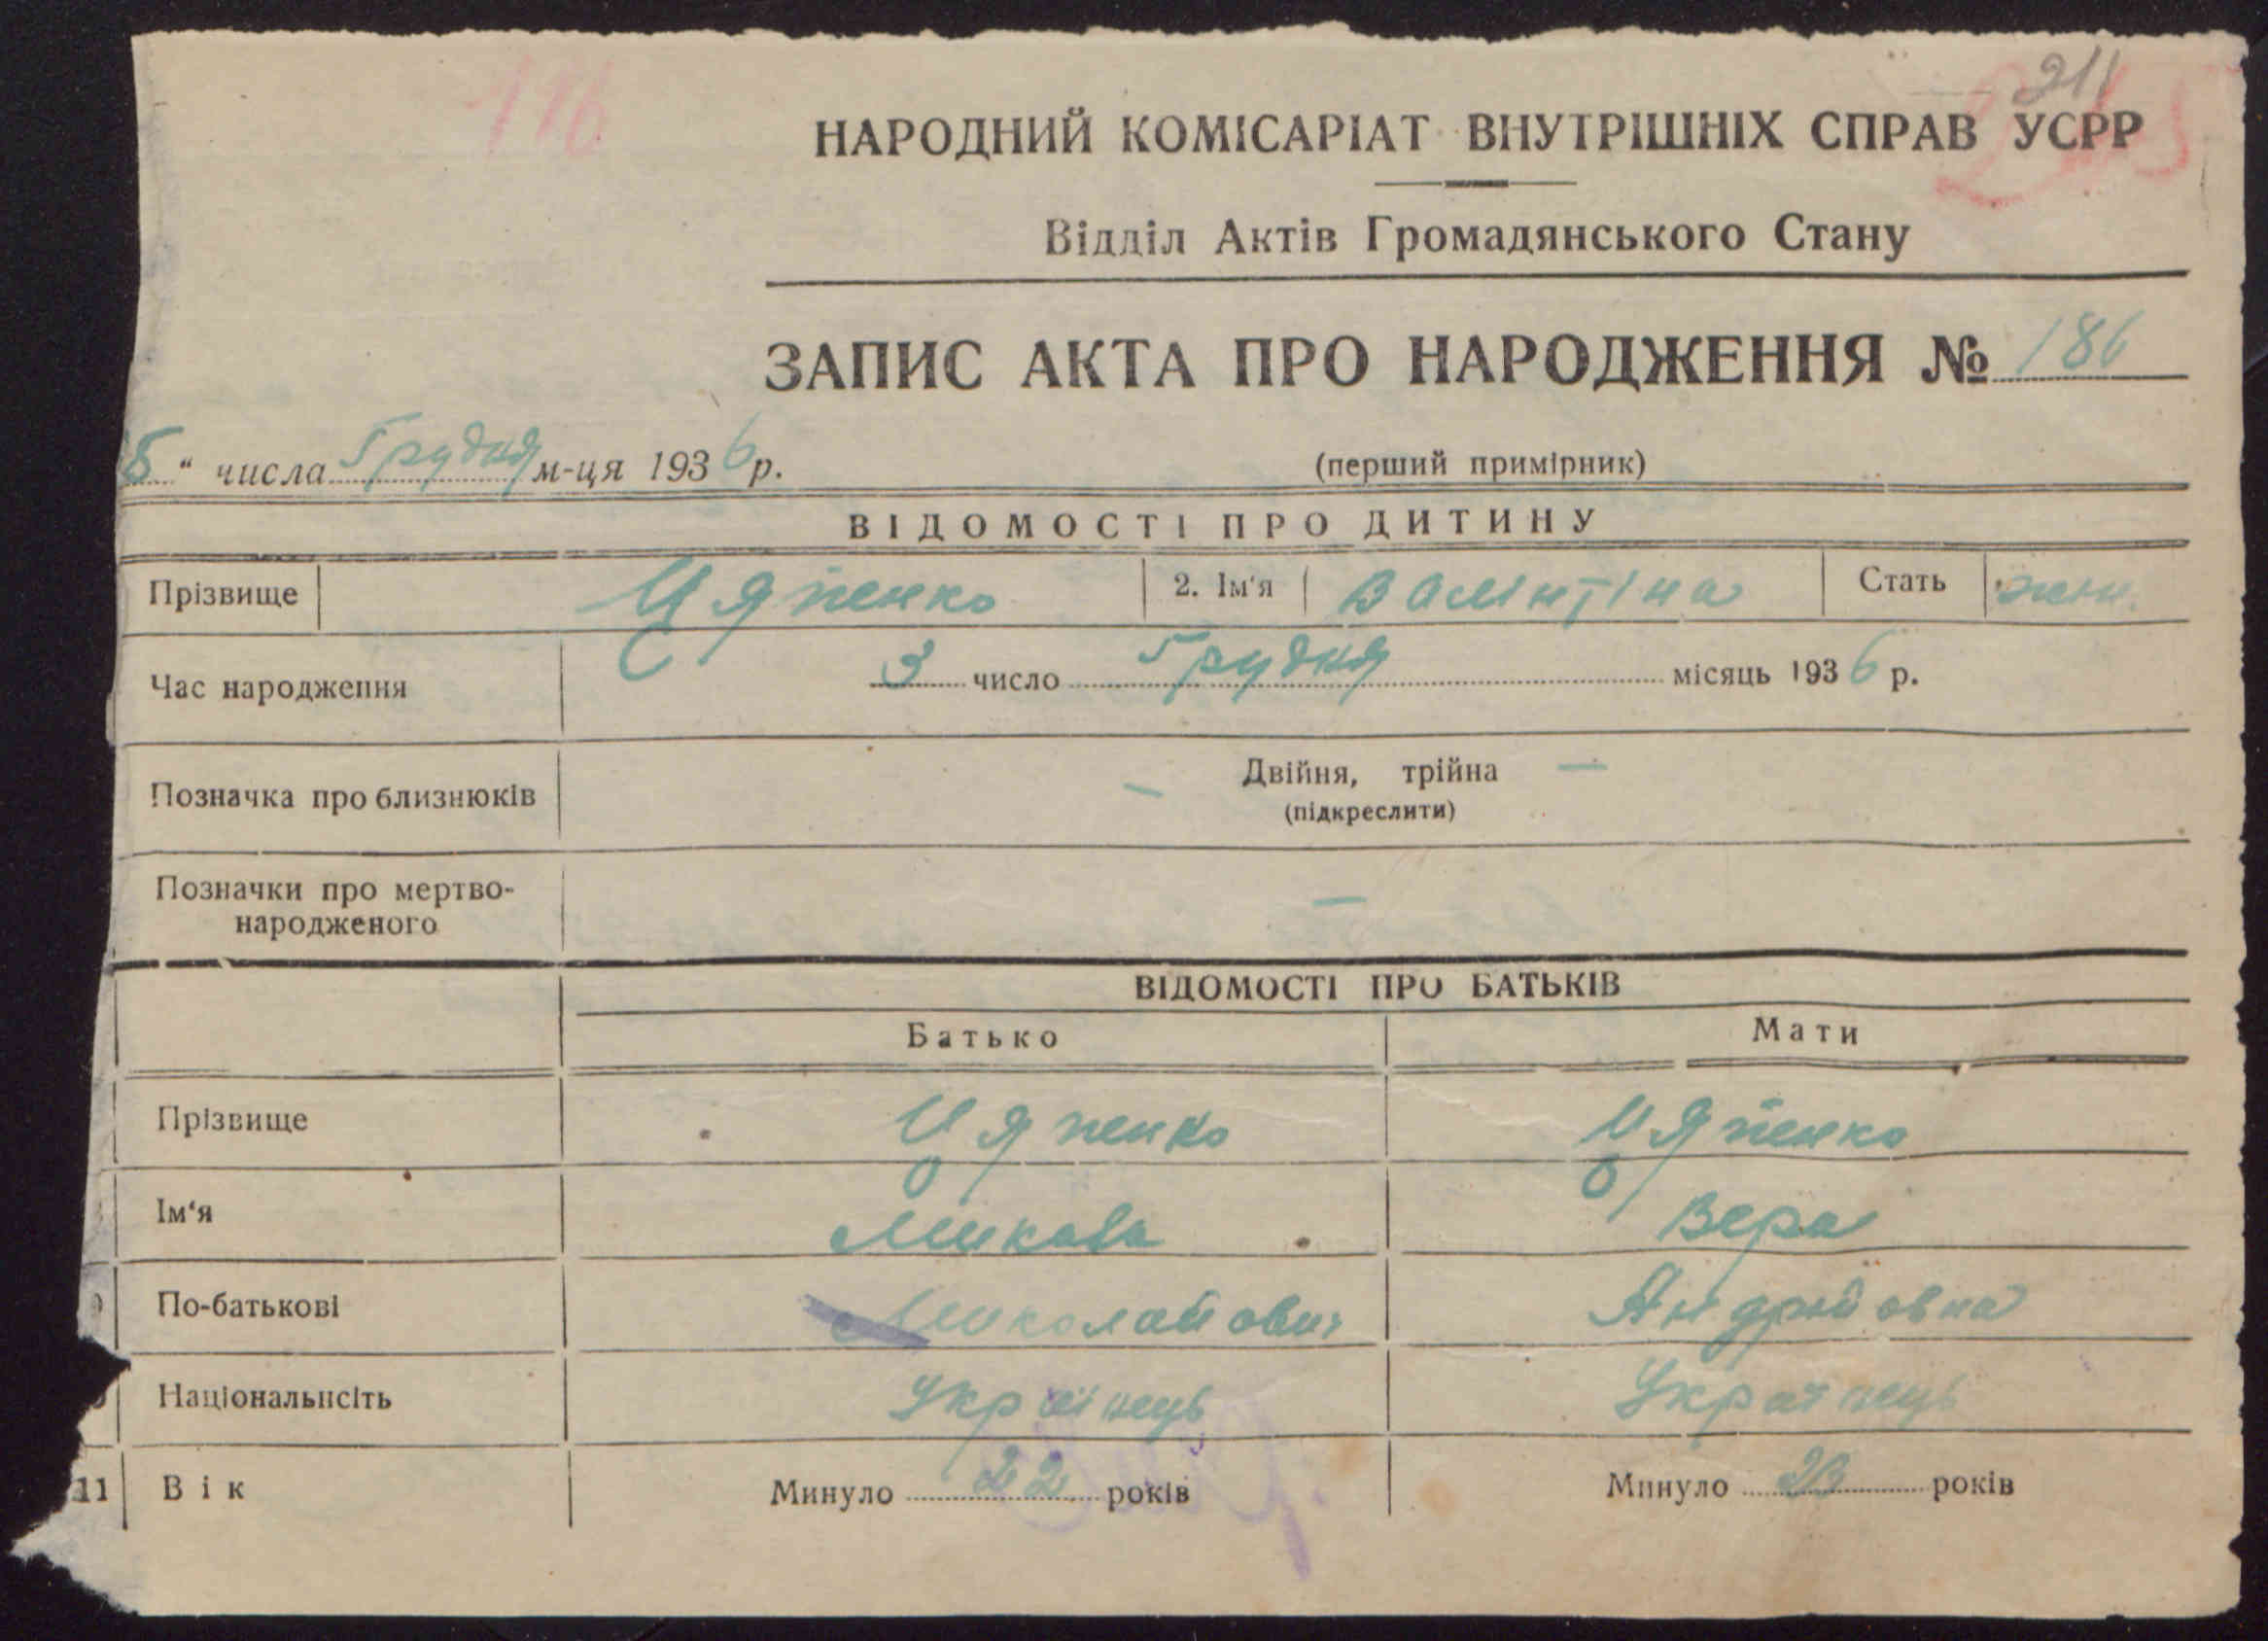 211
НАРОДНИЙ КОМІСАРІАТ ВНУТРІШНІХ СПРАВ УСРР
Відділ Актів Громадянського Стану
ЗАПИС АКТА ПРО НАРОДЖЕННЯ № 186
5 " числа Грудня м-ця 1936 р.
(перший примірник)
ВІДОМОСТІ ПРО ДИТИНУ
Прізвище Цяпенко 2. Ім'я Валінтіна Стать жін.
Час народження 3 число Грудня місяць 1936 р.
Позначка про близнюків — Двійня, трійна —
(підкреслити)
Позначки про мертво-
народженого —
ВІДОМОСТІ ПРО БАТЬКІВ
Батько Мати
Прізвище Цяпенко Цяпенко
Ім'я Микола Вера
По-батькові Миколайович Андрійовна
Національність Українець Українець
11 Вік Минуло 22 років Минуло 23 років